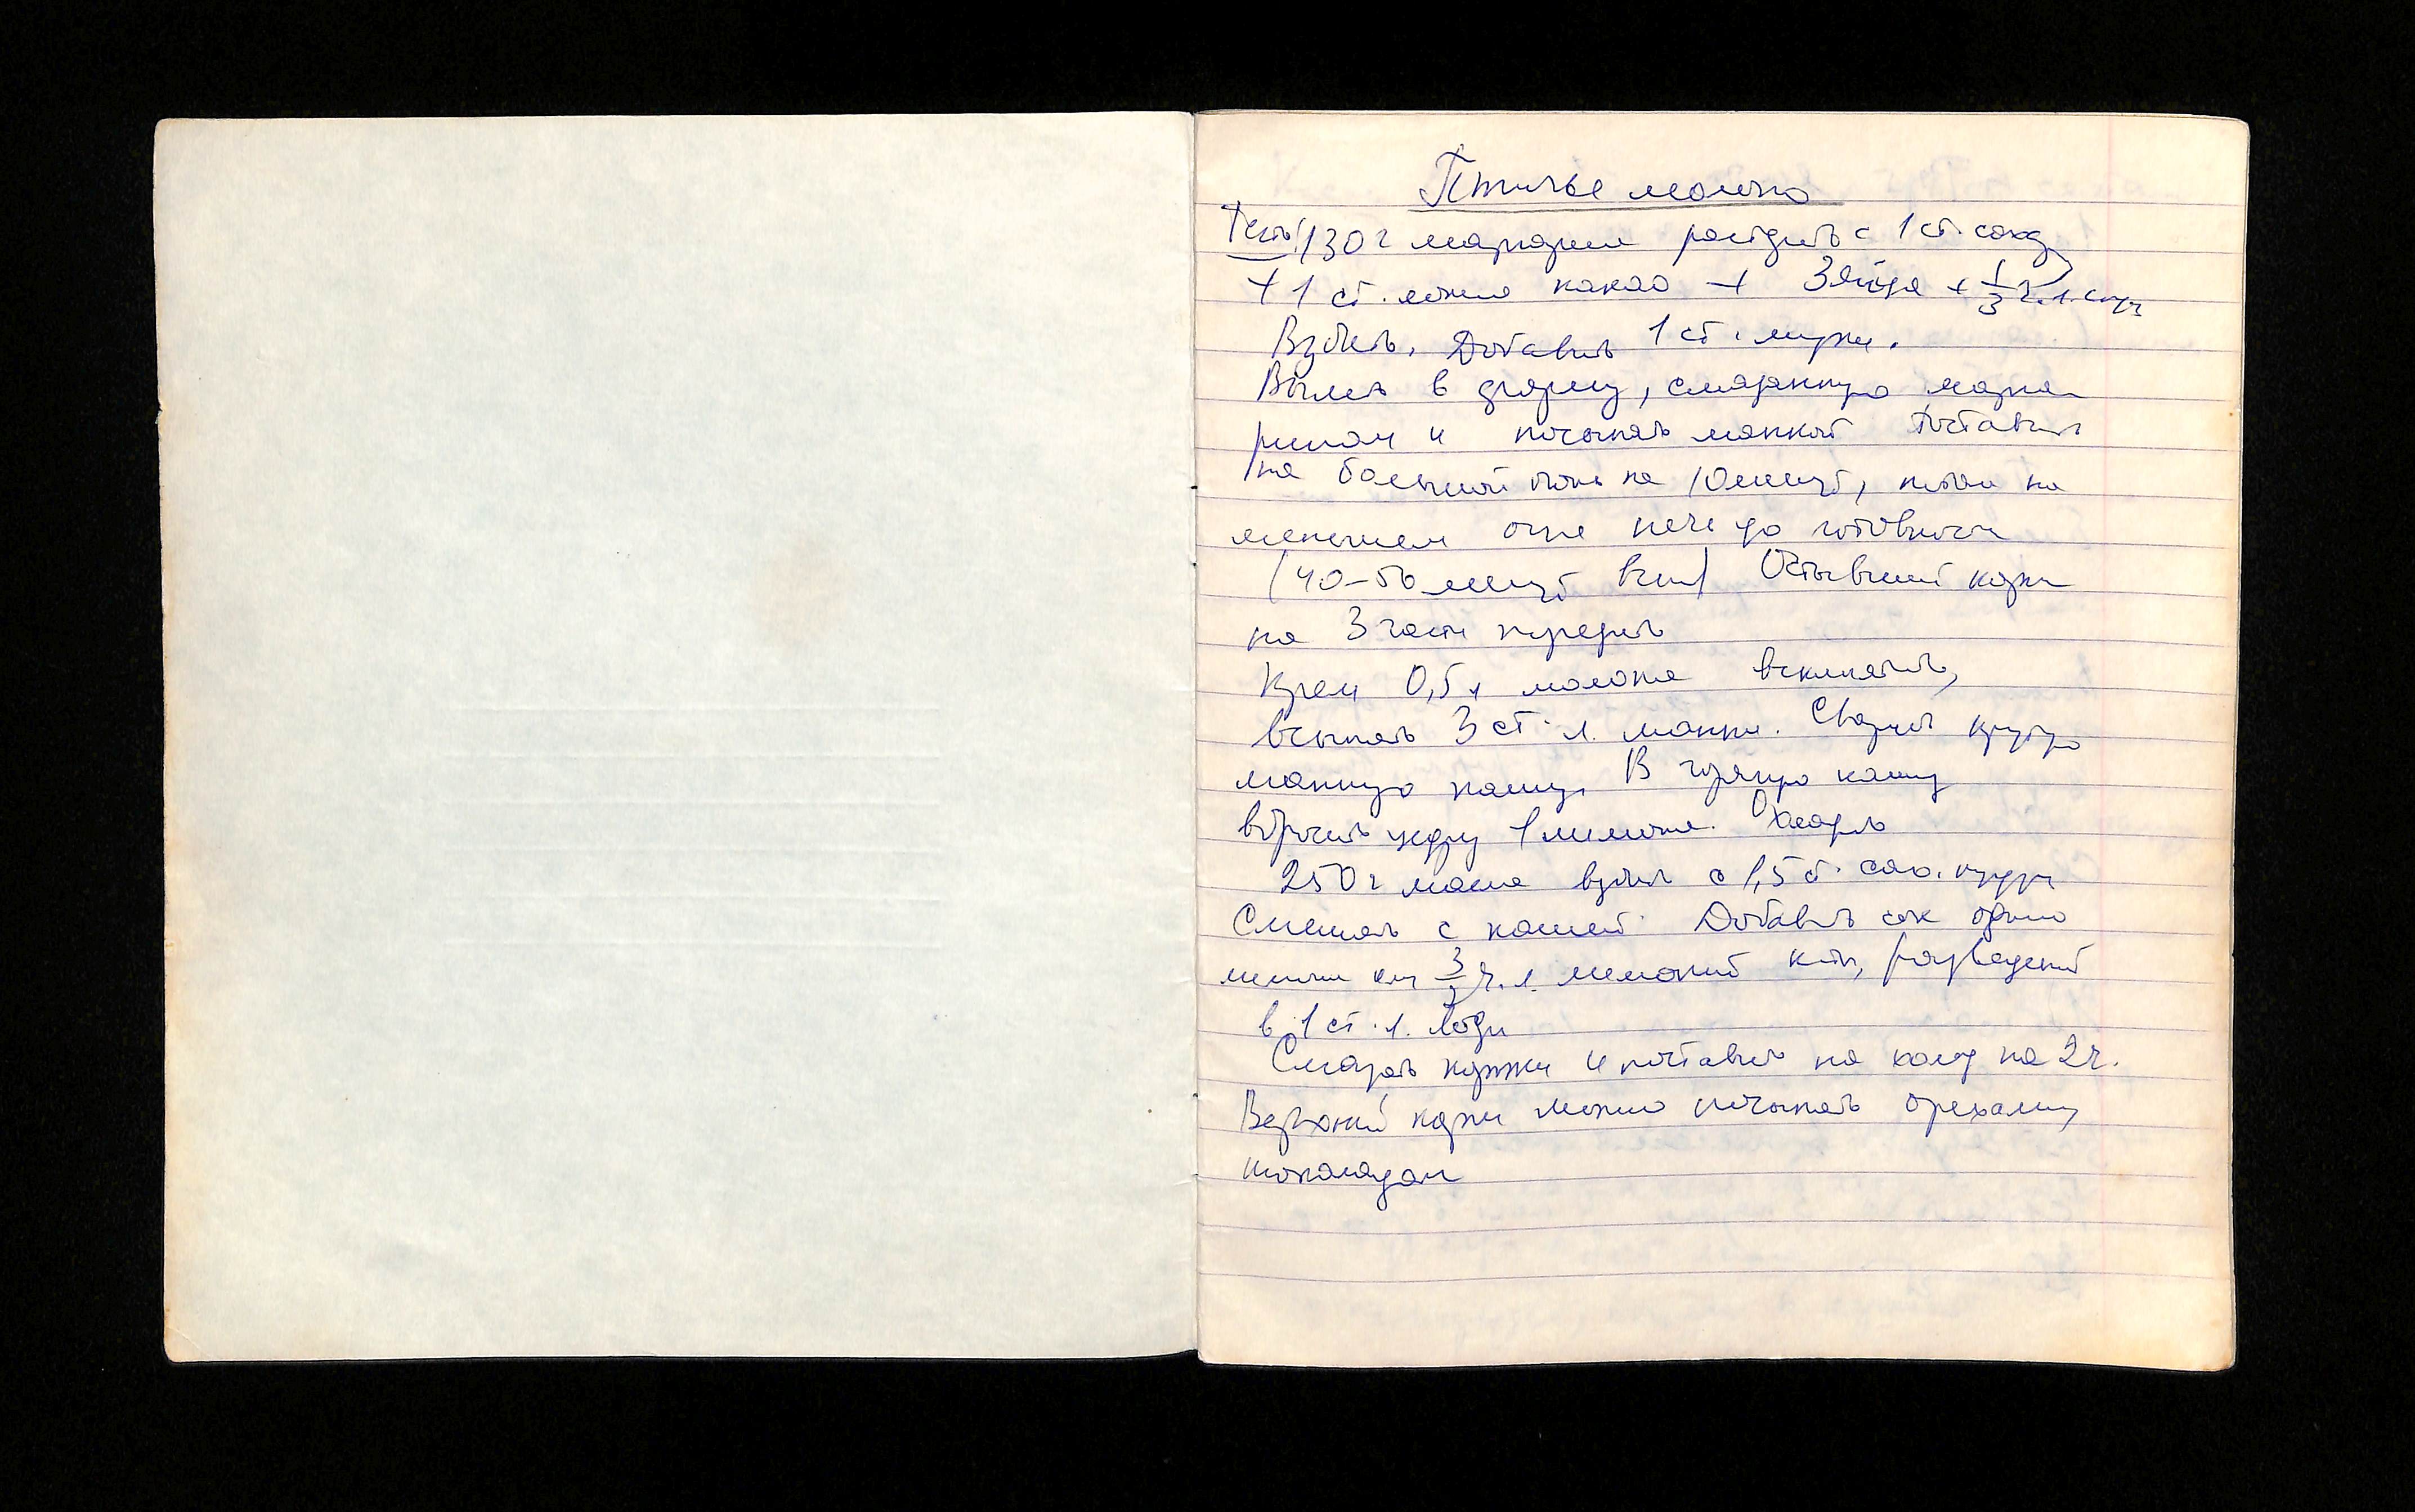 Птичье молоко
Тесто: 130 г маргарин растереть с 1 ст. сахар
+ 1 ст. ложка какао + 3 яйца + 1/3 ч.л. соды
Взбить. Добавить 1 ст. муки.
Вылить в форму, смазанную марга
рином и посыпать манкой Поставить
на большой огонь на 10 минут, потом на
меньшем огне печь до готовности
(40–50 минут всего) Остывший корж
на 3 части порезать
Крем 0,5 л молока вскипятить,
всыпать 3 ст. л. манки. Сварить крутую
манную кашу. В горячую кашу
вбросить цедру 1 лимона. Охладить
250 г масла взбить с 1,5 ст. сах. пудры
Смешать с кашей. Добавить сок одного
лимона или 3/ ч.л. лимонной кисл, разведенной
в 1 ст. л. воды
Смазать коржи и поставить на холод на 2 ч.
Верхний корж можно посыпать орехами,
шоколадом